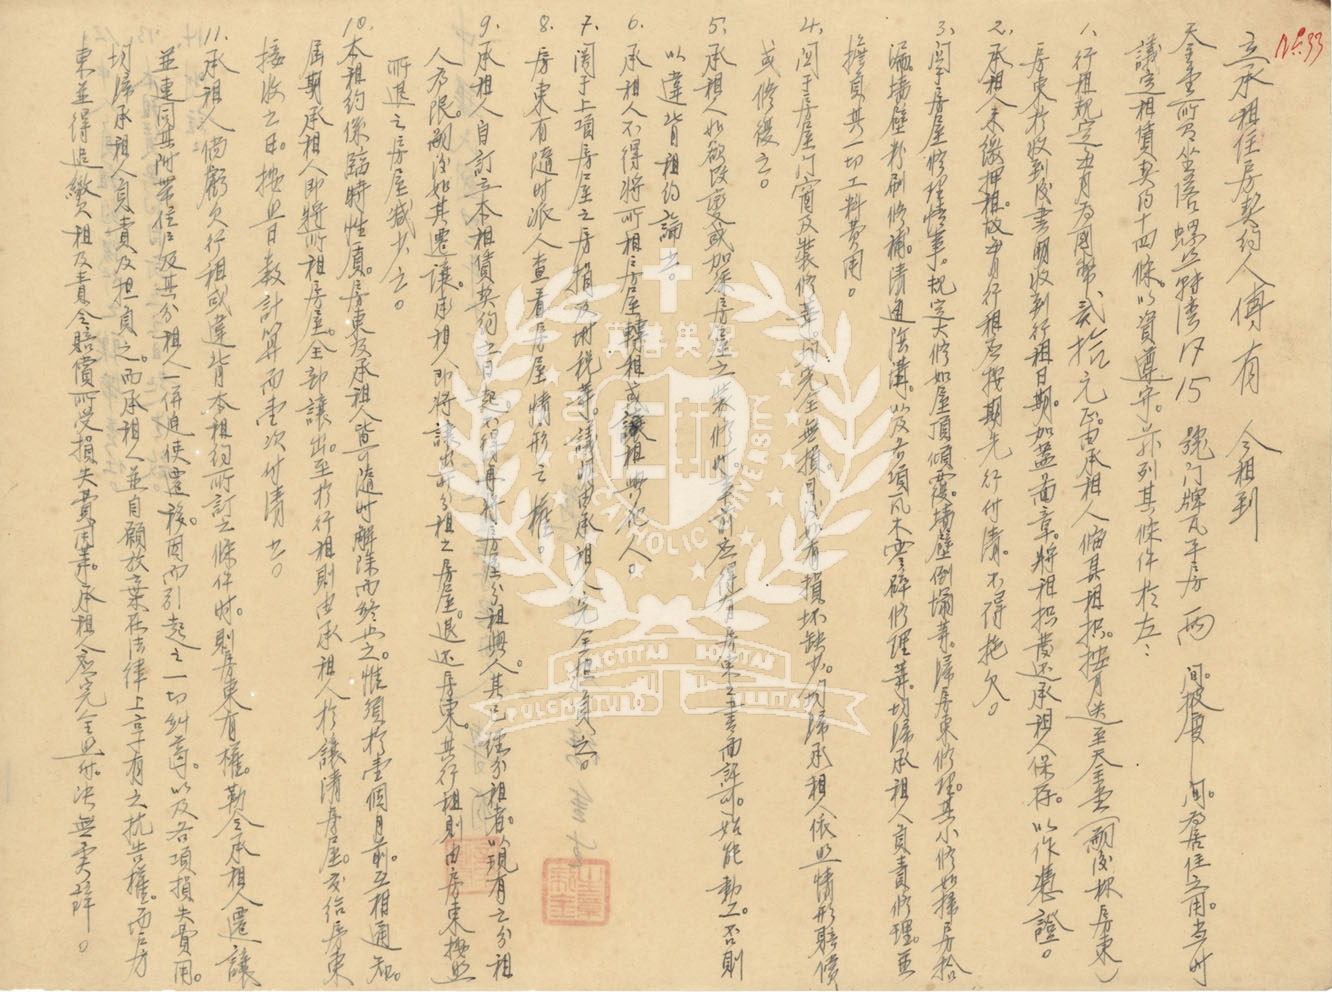 No.33
立承租住房契約人傅有 今租到
天主堂所有坐落螺螄灣 15 號門牌瓦平房兩間。披廈一間。為居住之用。當時
議定租賃契約十四條。以資遵守。茲列其條件於左：
1. 行租規定每月為國幣貳拾元正。由承租人備具租摺。按月送至天主堂（嗣後稱房東）
房東於收到後書明收到行租日期。加蓋圖章。將租摺發還承租人保存。以作憑證。
2. 承租人未繳押租。故每月行租應按期先行付清。不得拖欠。
3. 關于房屋修理情事。規定大修如屋頂傾覆。墻壁倒塌等。歸房東修理。其小修如掃房拾
漏墻壁粉刷修補。清通陰溝。以及各項瓦木零碎修理等。均歸承租人負責修理。並
擔負其一切工料費用。
4. 關于房屋門窗及裝修等。均完全無損。日後如有損坏缺少。均歸承租人依照情形賠償
或修復之。
5. 承租人如欲改變或加添房屋之裝修時。事前應得有房東之書面許可。始能動工。否則
以違背租約論。
6. 承租人不得將所租之房屋轉租或讓租與他人。
7. 關于上項房屋之房捐及附稅等。議明由承租人完全担負之。
8. 房東有隨時派人查看房屋情形之權。
9. 承租人自訂立本租賃契約之日起。不得再將房屋分租與人。其已經分租者。以現有之分租
人為限。嗣後如其遷讓。承租人即將讓出分租之房屋。退還房東。其行租則由房東按照
所退之房屋減少之。
10. 本租約係臨時性質。房東及承租人皆可隨時解除而終止之。惟須於壹個月前。互相通知。
屆期承租人即將所租房屋。全部讓出。至於行租則由承租人於讓清房屋。交给房東
接收之日。按照日数計算而壹次付清。
11. 承租人倘虧欠行租或違背本租約所訂之條件時。則房東有權。勒令承租人遷讓
並連同其附帶住戶及其分租人一併迫使遷移。因而引起之一切糾葛。以及各項損失費用。
均歸承租人負責及担負之。而承租人並自願放棄在法律上享有之抗告權。而房
東並得追繳欠租及責令賠償所受損失費用等。承租人應完全照付。決無異辭。